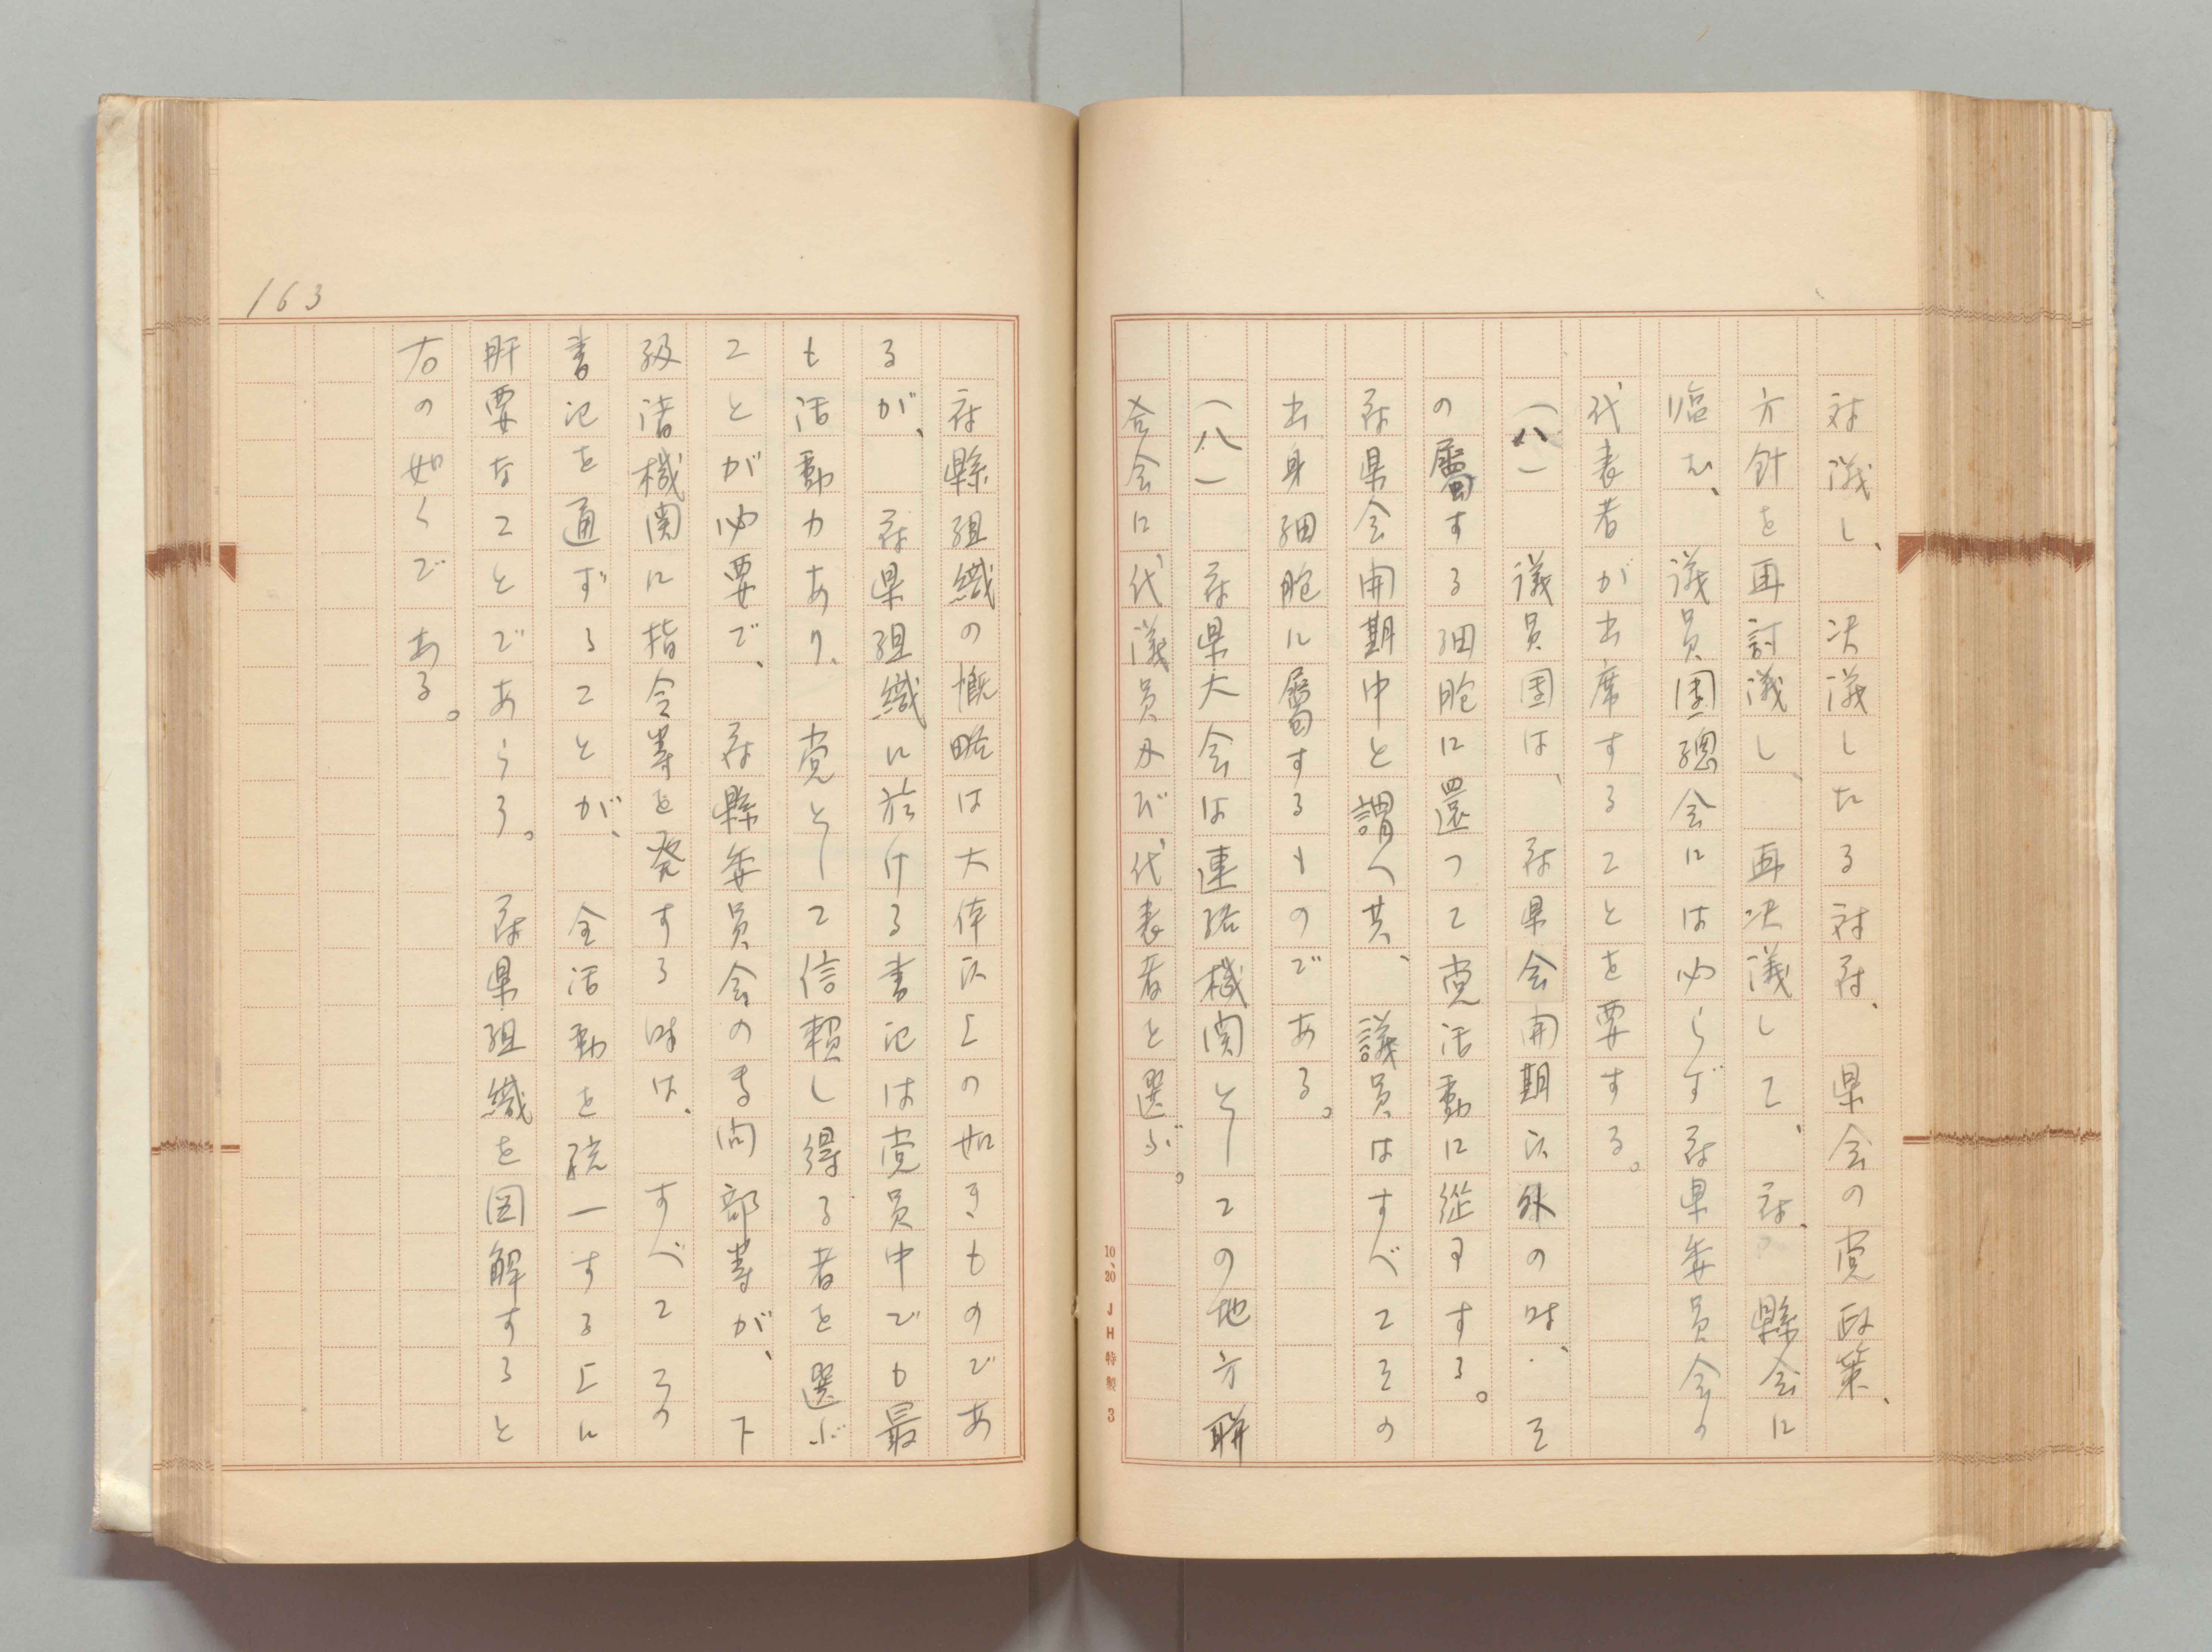 対議し、決議したる対府、県会の党政策、
方針を再討議し、再決議して、府、縣会に
臨む、議員團總会には必らず府県委員会の
代表者が出席することを要する。
（八）議員団は、府県会開期以外の時、そ
の屬する細胞に還つて党活動に從事する。
府県会開期中と謂へ共、議員はすべてその
出身細胞に屬するものである。
（八）府県大会は連絡機関としての地方聯
合会に代議員及び代表者を選ぶ。
10、20 JH特製 3
163
府縣組織の概略は大体以上の如きものであ
るが、府県組織に於ける書記は党員中でも最
も活動力あり、党として信頼し得る者を選ぶ
ことが必要で、府縣委員会の専問部等が、下
級諸機関に指令等を発する時は、すべてこの
書記を通ずることが、全活動を統一する上に
肝要なことであらう。府県組織を図解すると
右の如くである。